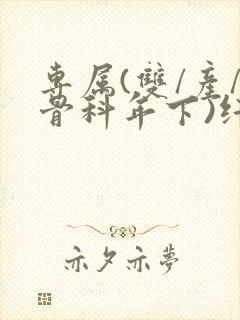 專属(雙/產/
骨科年下)纟
亦夕亦夢